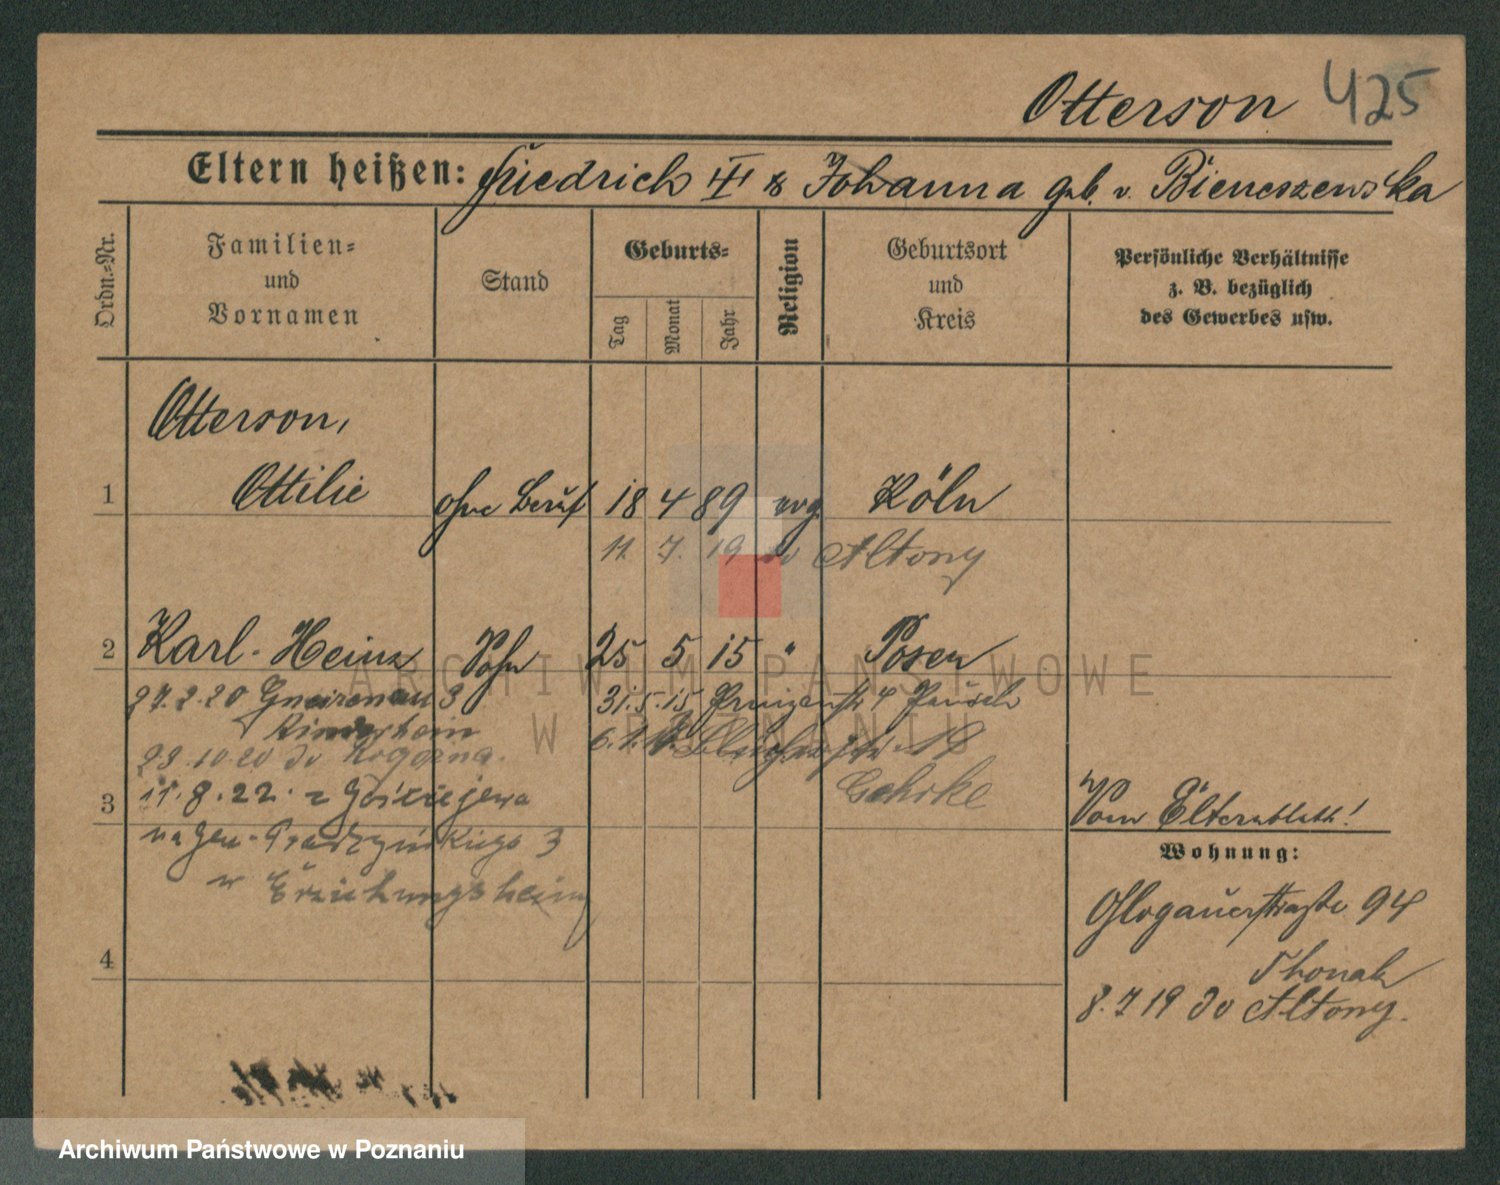 Otterson 425
Eltern heißen: Friedrich III & Johanna geb. v. Bieneszewska
Ordn.=Nr.
Familien=
und
Vornamen
Stand
Geburts=
Tag
Monat
Jahr
Religion
Geburtsort
und
Kreis
Persönliche Verhältnisse
z. B. bezüglich
des Gewerbes usw.
Otterson,
1 Ottilie ohne Beruf 18 4 89 evg. Köln
11. 7. 19 do Altony
2 Karl-Heinz Sohn 25 5 15 " Posen
27.2.20 Gneisenau 3 31.5.15
Kinderheim
23.10.20 do Rogoźna.
Gehrke
3 11.8.22. z
na Gen. Prądzyńskiego 3
w Erziehungsheim
Vom Elternblatt!
Wohnung:
Glogauerstraße 94
8.7.19 do Altony.
4
ARCHIWUM PAŃSTWOWE
W POZNANIU
Archiwum Państwowe w Poznaniu